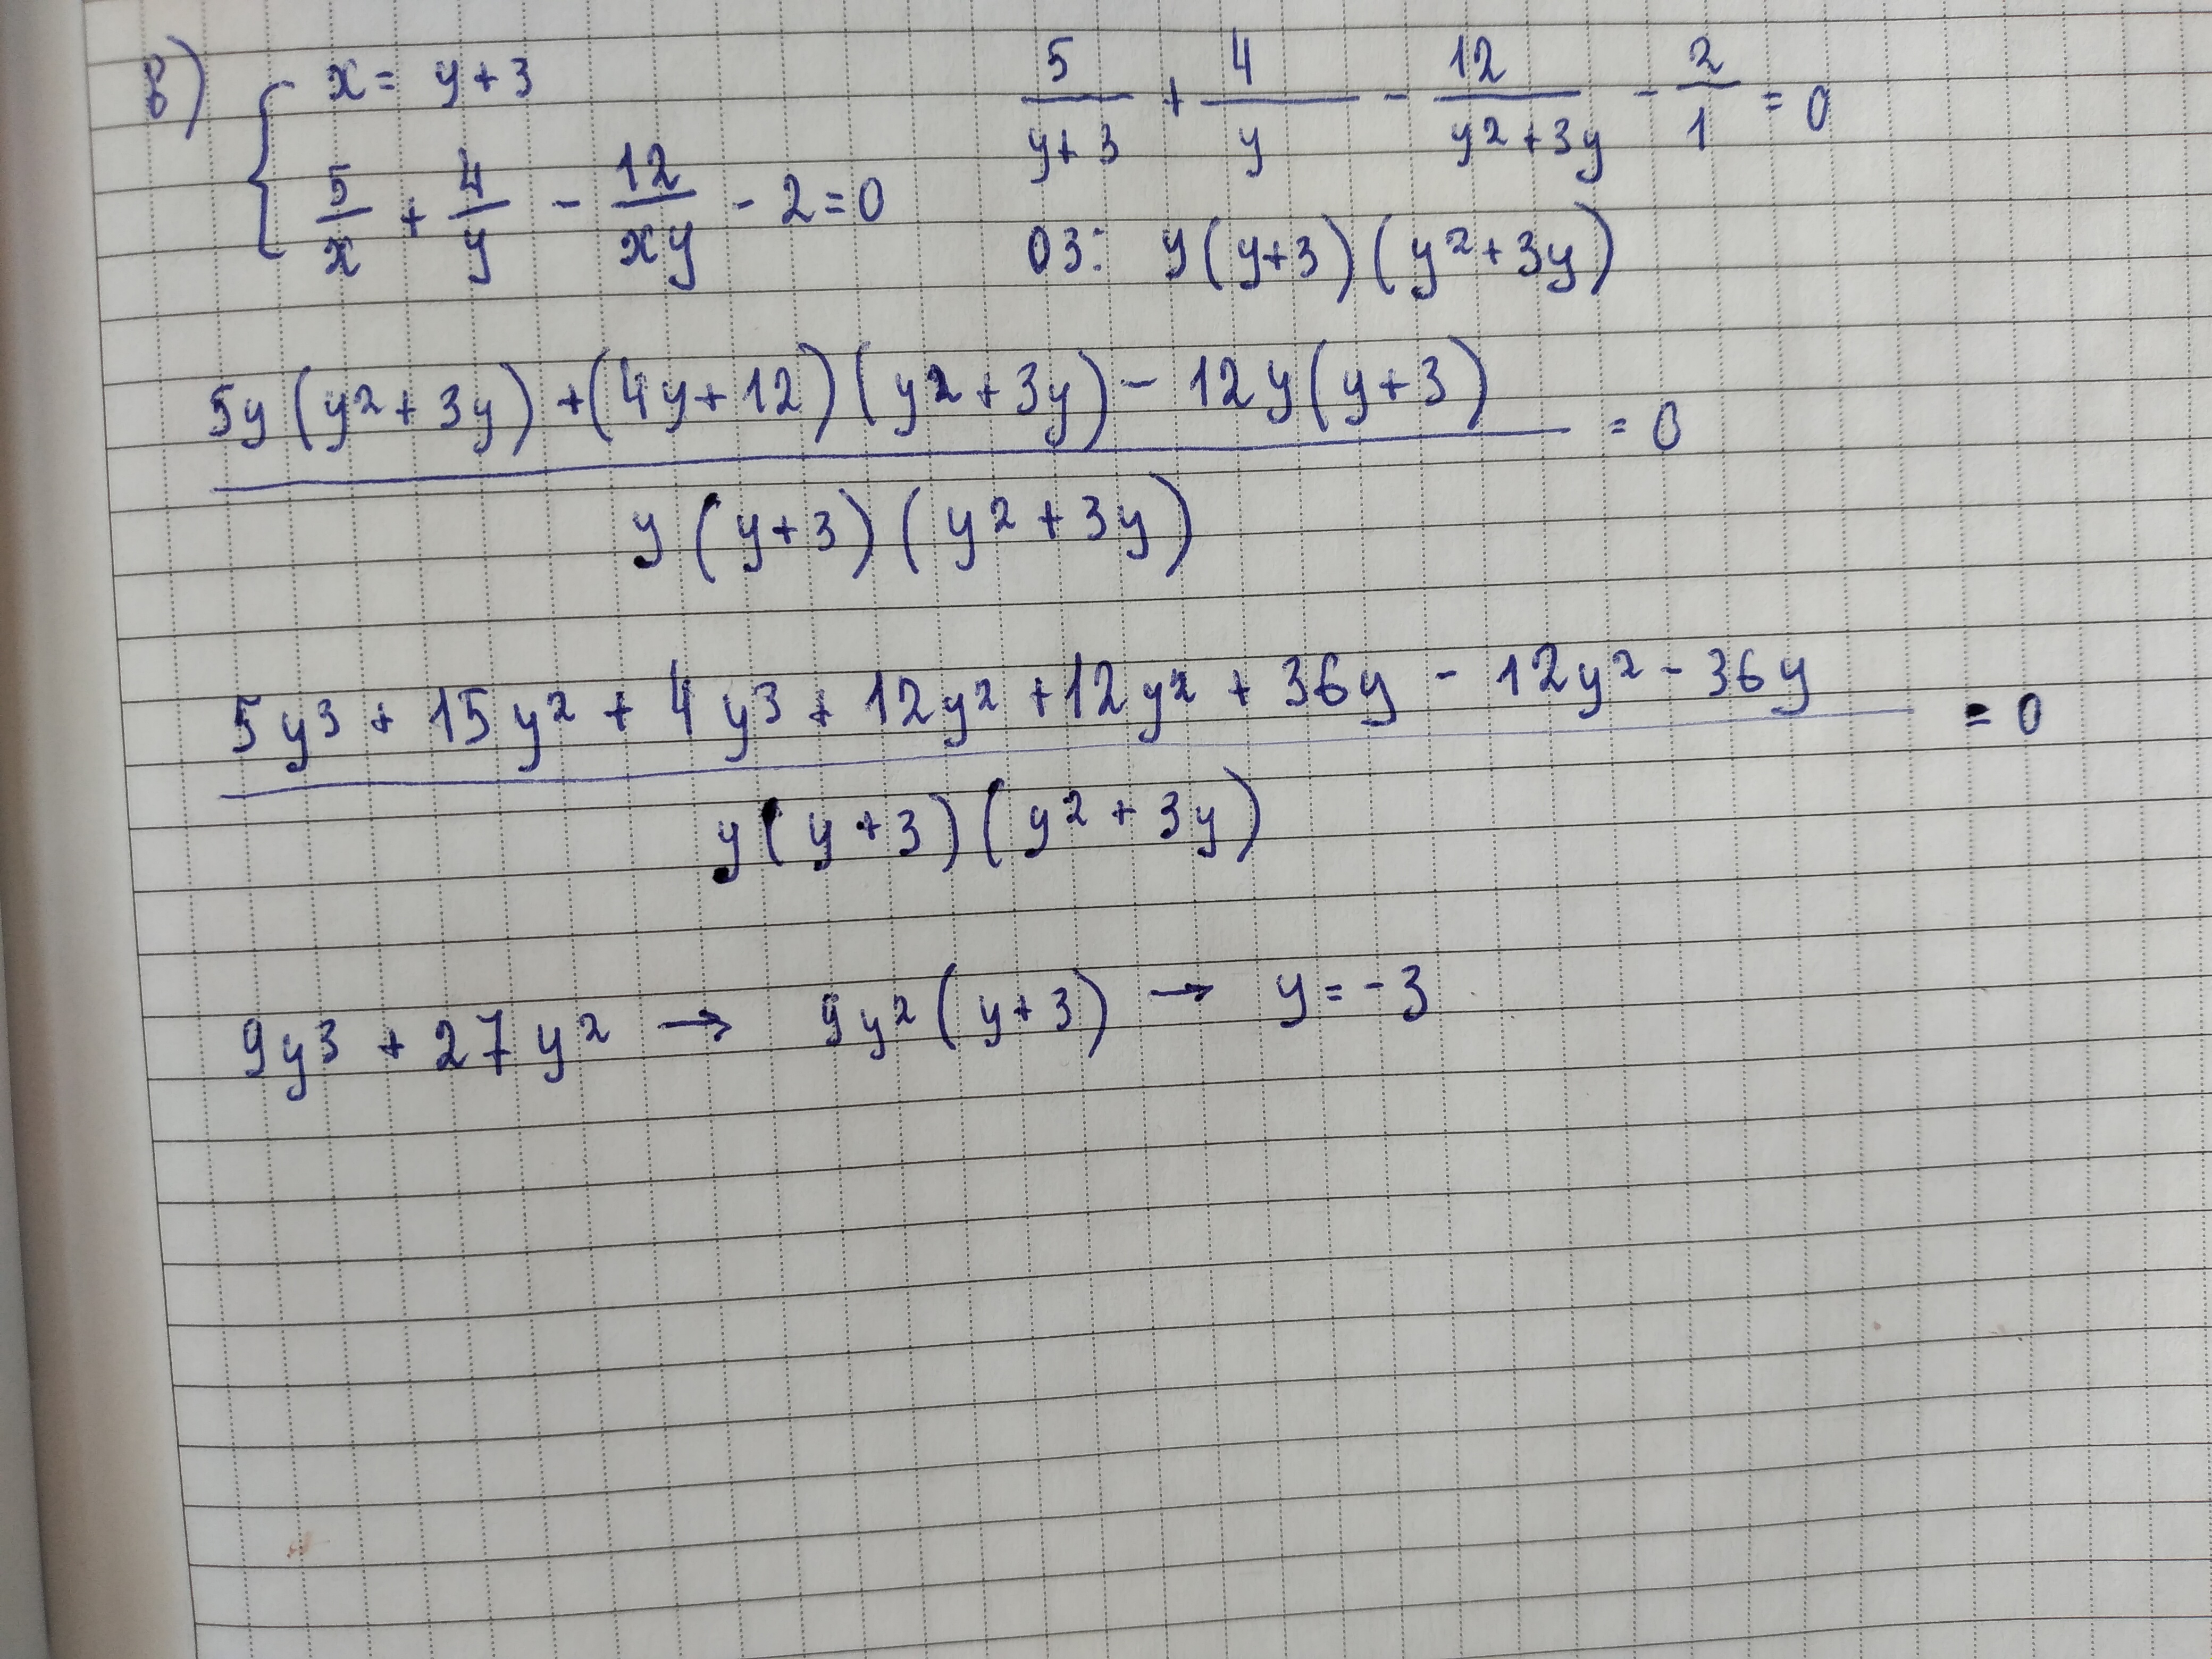 в) { x = y + 3
5/x + 4/y - 12/xy - 2 = 0
5/(y+3) + 4/y - 12/(y² + 3y) - 2/1 = 0
ОЗ: y(y+3)(y² + 3y)
(5y(y² + 3y) + (4y + 12)(y² + 3y) - 12y(y+3))/(y(y+3)(y² + 3y)) = 0
(5y³ + 15y² + 4y³ + 12y² + 12y² + 36y - 12y² - 36y)/(y(y+3)(y² + 3y)) = 0
9y³ + 27y² → 9y²(y+3) → y = -3